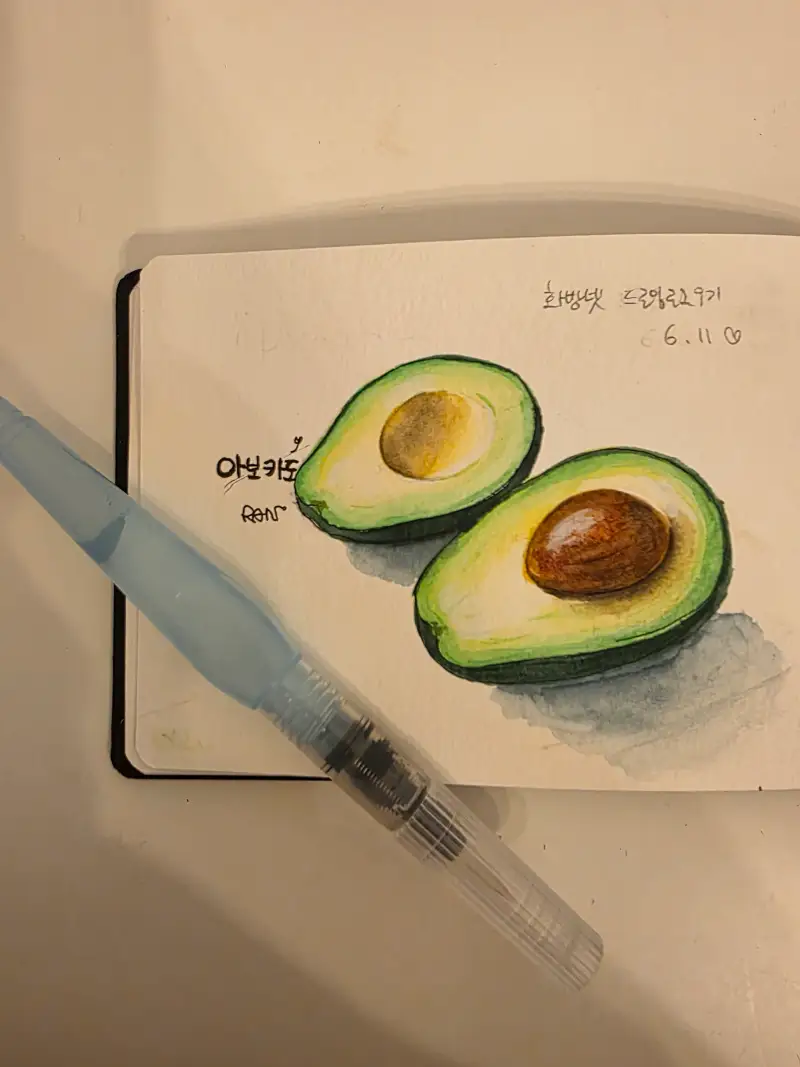 화방넷 드로잉로그 9기
6.11♡
아보카도
RAN